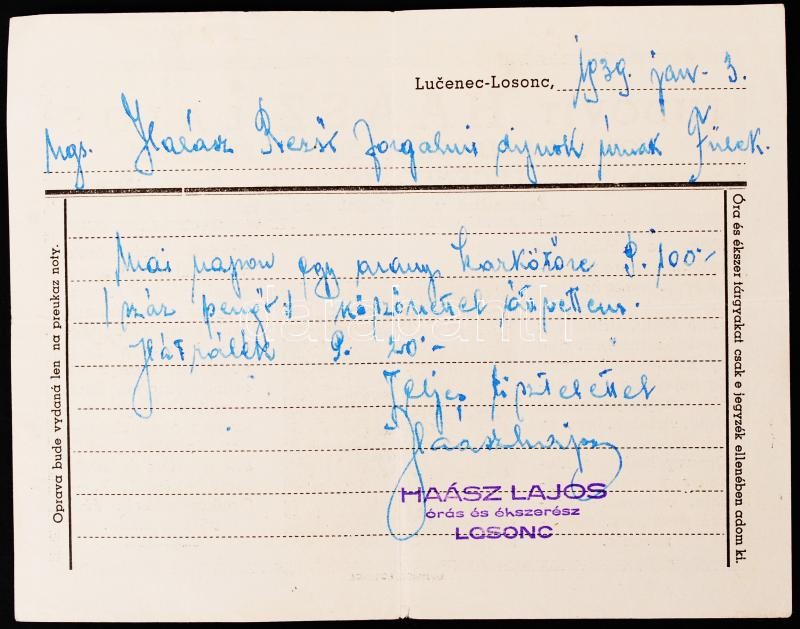 Lučenec-Losonc, 1939. jan. 3.
Ngs. Halász Rezső forgalmi díjnok úrnak Fülek.
Mai napon egy arany karkötőre P. 100.-
/ száz pengőt / köszönettel átvettem.
Hátrálék P. 20.-
Teljes tisztelettel
Haász Lajos
HAÁSZ LAJOS
órás és ékszerész
LOSONC
Oprava bude vydaná len na preukaz noty.
Óra és ékszer tárgyakat csak e jegyzék ellenében adom ki.
darabanth